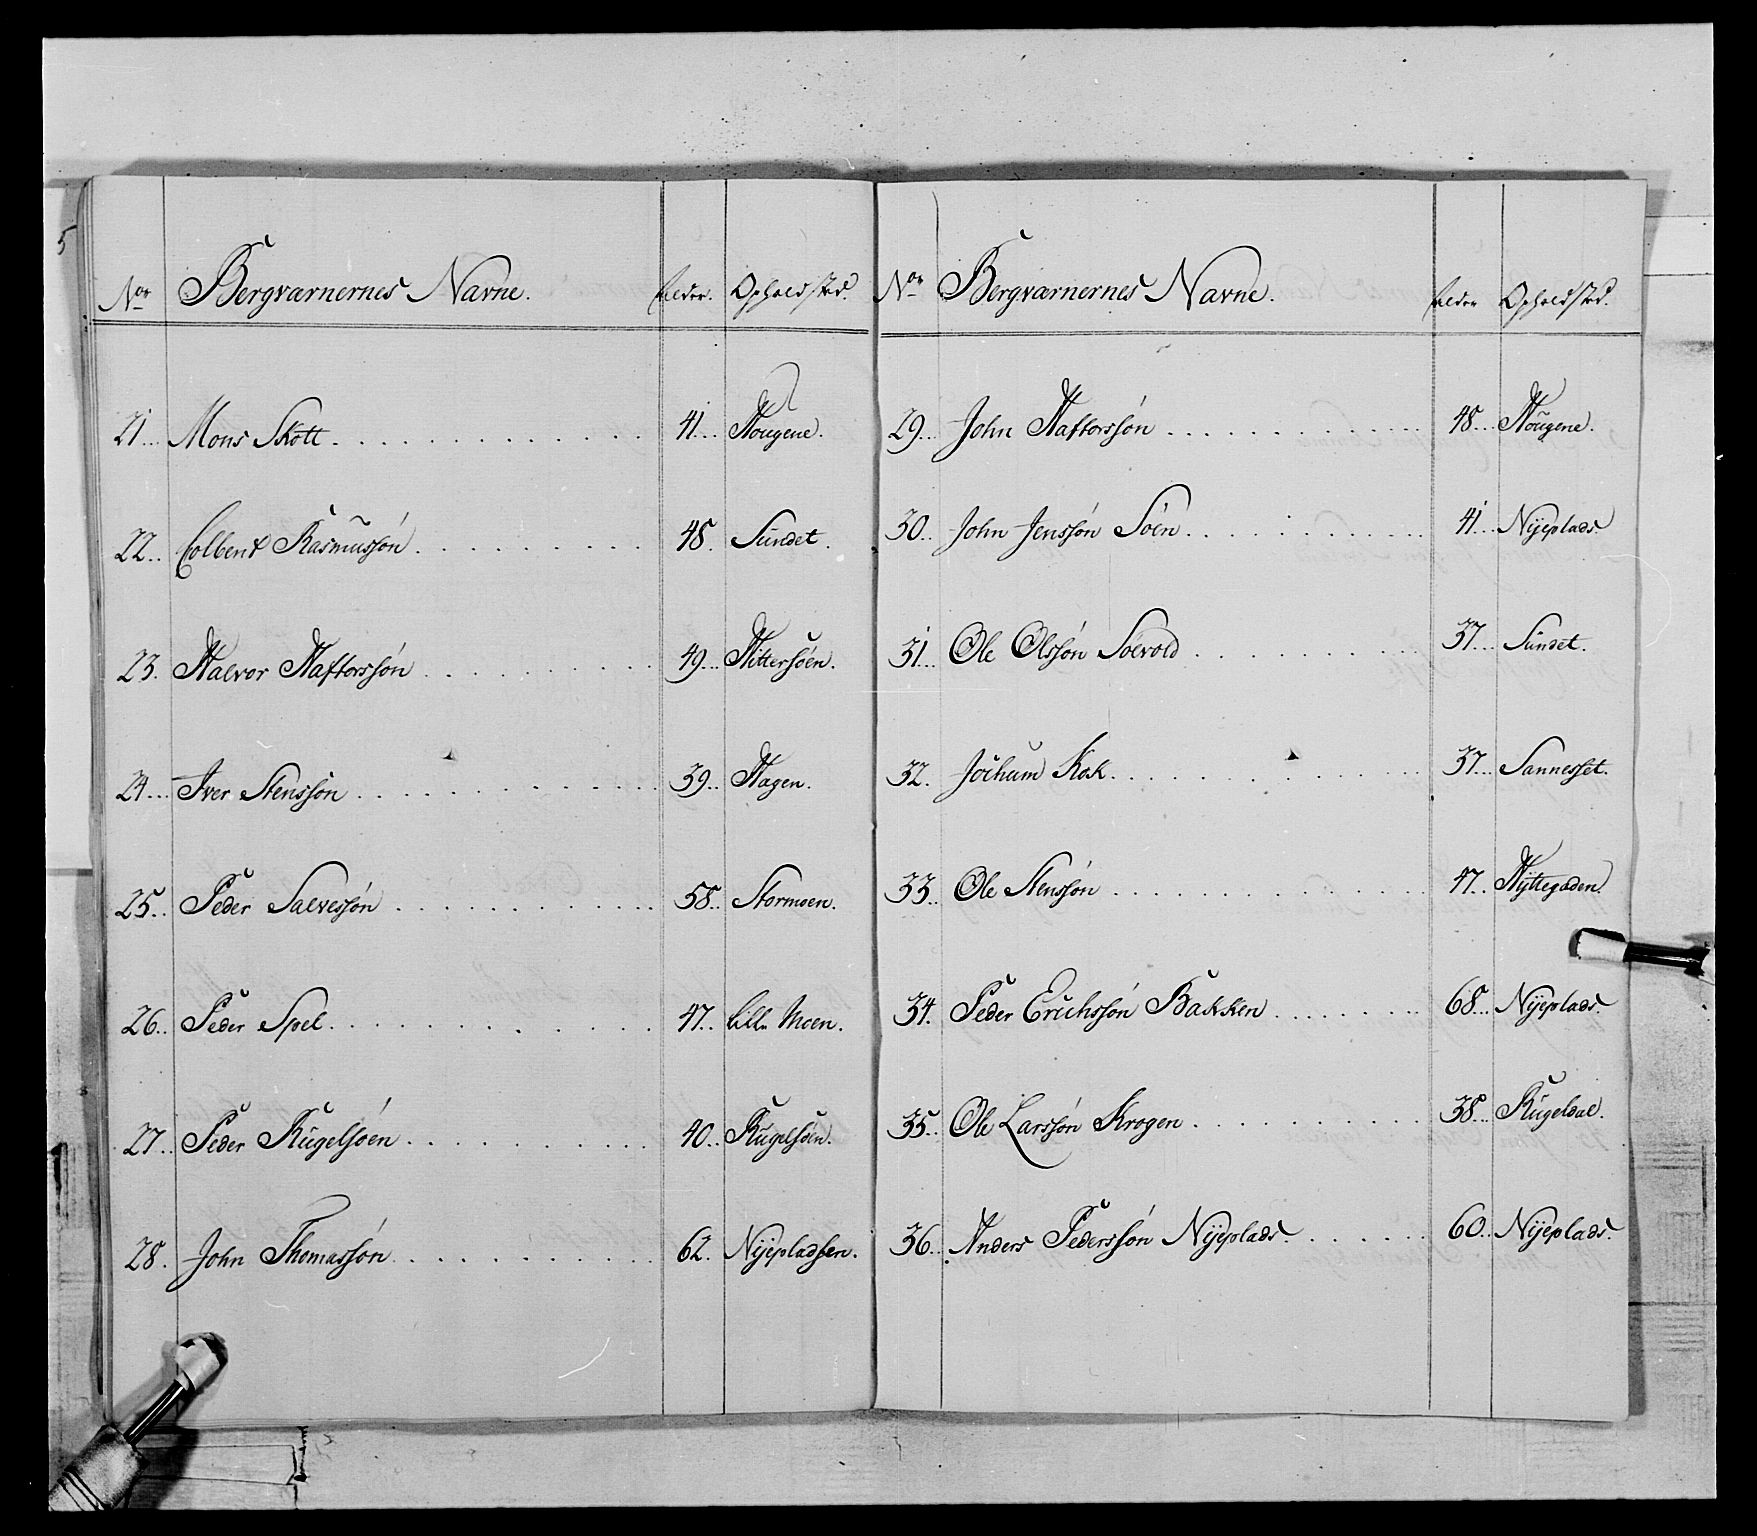 5
No Bergværnernes Navne. Alder. Opholdsted.
21... Mons Skott 41... Hougene.
22.. Colbent Rasmussøn 48. Sundet.
23. Halvor Haftorssøn 49... Hittersøen.
24... Iver Stenssøn 39.. Hagen.
25.. Peder Salvessøn 58.. Stormoen.
26.. Peder Spel 47.. Lille Moen.
27.. Peder Kugelsøen 40.. Kugelsøen.
28. John Thomassøn 62. Nyepladsen.
No Bergværnernes Navne. Alder Opholdsted.
29.. John Haftorssøn 48... Hougene.
30.. John Jenssøn Söen 41... Nyeplads
31... Ole Olssøn Solvold 37... Sundet.
32. Jochum Kok 37... Sannesset.
33.. Ole Stenssøn 47.. Hyttegaden.
34. Peder Erichssøn Bakken 68... Nyeplads
35.. Ole Larssøn Krogen 38.. Kugeldal.
36.. Anders Pederssøn Nyeplads 60.. Nyeplads.